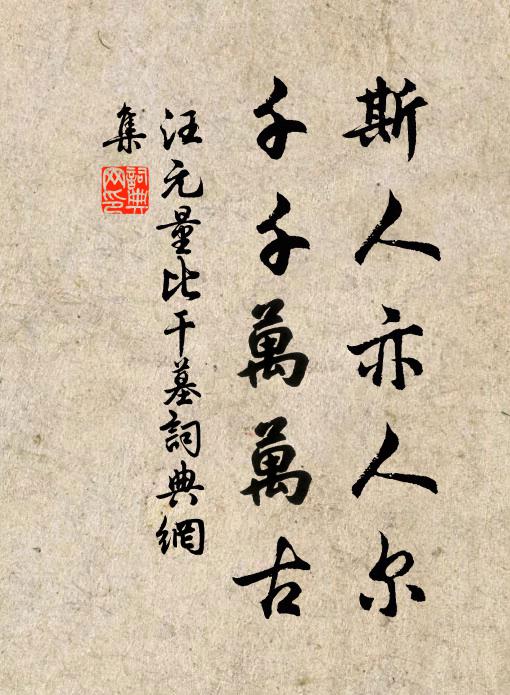 斯人亦人尔
千千萬萬古
汪元量比干墓詞典網
集
詞典
网印